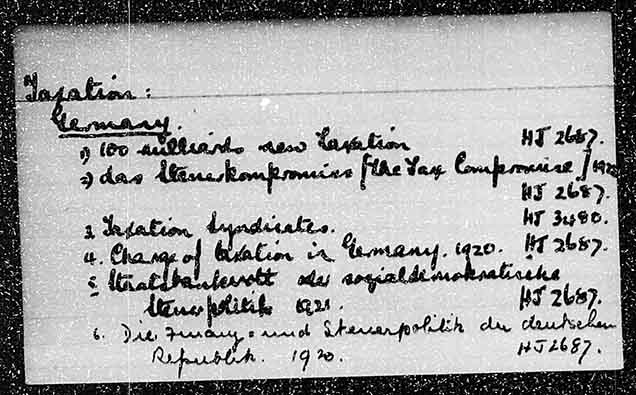 Taxation:
Germany.
1) 100 milliards new Taxation HJ 2687.
2) das Steuerkompromiss [the Tax Compromise] 1922
HJ 2687.
3. Taxation Syndicates. HJ 3480.
4. Charge of taxation in Germany. 1920. HJ 2687.
5. Staatsbankerott oder sozialdemokratische
Steuerpolitik 1921. HJ 2687.
6. Die Finanz- und Steuerpolitik der deutschen
Republik. 1920. HJ 2687.